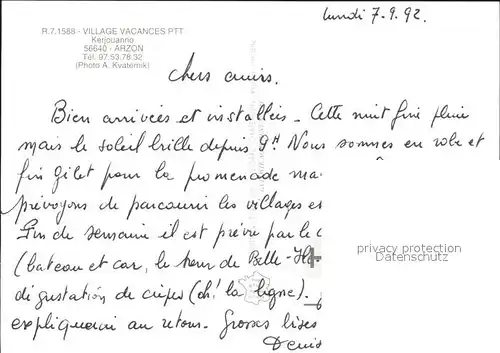 lundi 7.9.92.
R.7.1588 - VILLAGE VACANCES PTT
Kerjouanno
56640 - ARZON
Tél. 97.53.78.32
(Photo A. Kvaternik)
chers amis.
Bien arrivées et installées - Cette nuit fine pluie
mais le soleil brille depuis 9H. Nous sommes en robe et
fin gilet pour la promenade ma
prévoyons de parcourir les villages es
Fin de semaine il est prévu par le c
(bateau et car, le tour de Belle-Ile
privacy protection
Datenschutz
dégustation de crêpes (oh! la ligne).
expliquerai au retour. Grosses bises
Denis